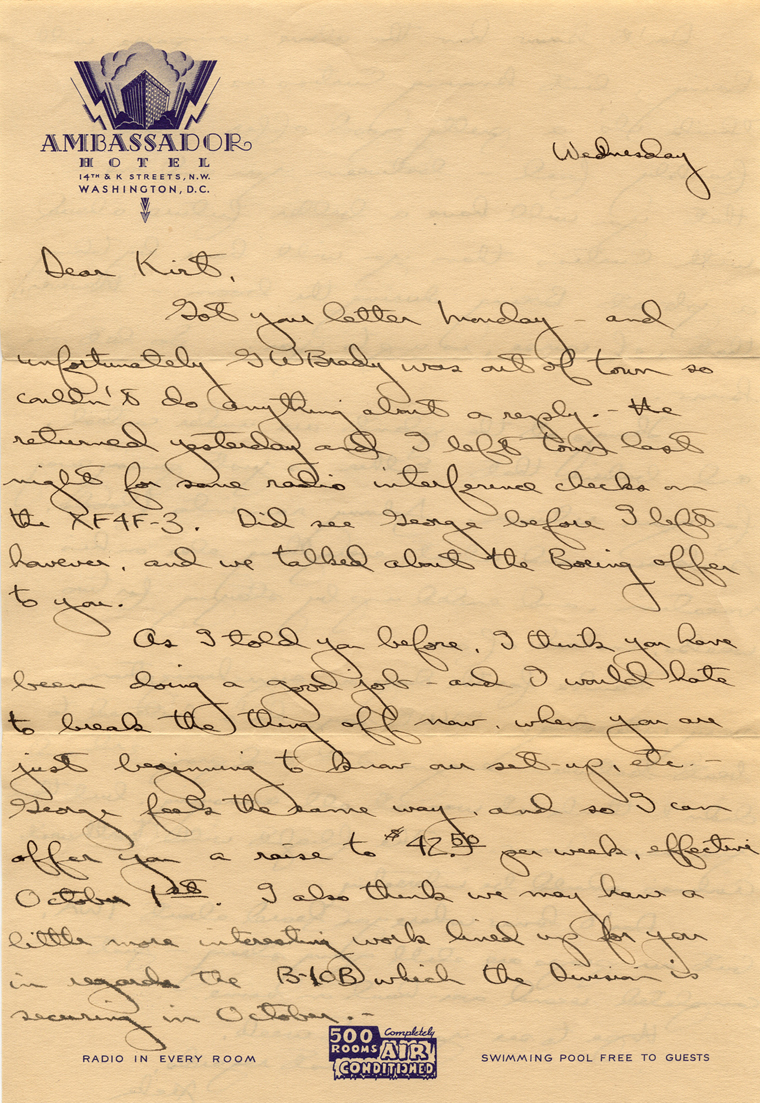 AMBASSADOR
HOTEL
14TH & K STREETS, N.W.
WASHINGTON, D.C.
Wednesday
Dear Kirt,
Got your letter Monday - and
unfortunately GW Brady was out of town so
couldn't do anything about a reply. - He
returned yesterday and I left town last
night for some radio interference checks on
the XF4F-3. Did see George before I left
however, and we talked about the Boeing offer
to you.
As I told you before, I think you have
been doing a good job - and I would hate
to break the thing off now, when you are
just beginning to know our set-up, etc. -
George feels the same way, and so I can
offer you a raise to $42.50 per week, effective
October 1st. I also think we may have a
little more interesting work lined up for you
in regards the B-10B which the Division is
securing in October. -
RADIO IN EVERY ROOM
500 ROOMS Completely AIR CONDITIONED
SWIMMING POOL FREE TO GUESTS